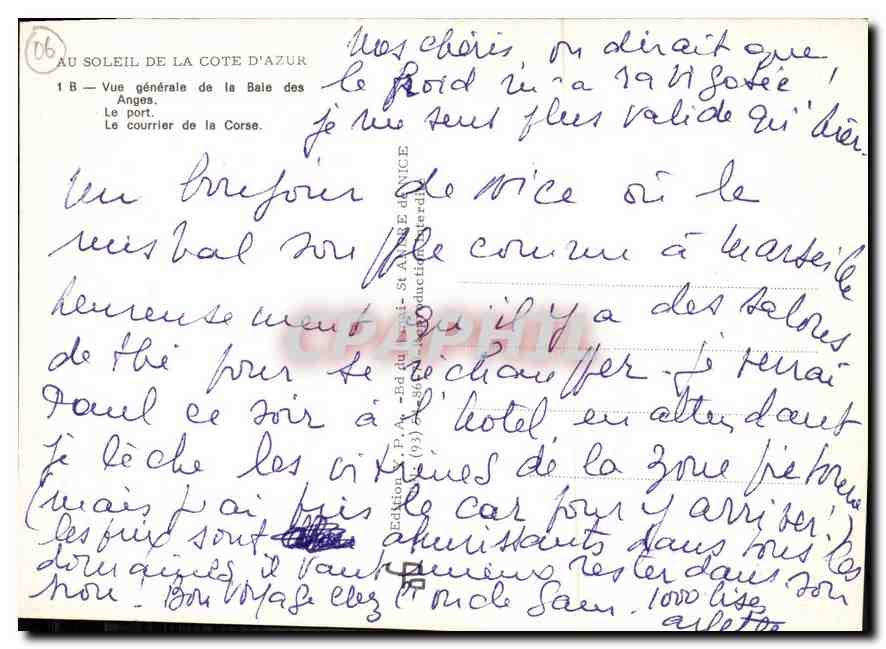 06
AU SOLEIL DE LA COTE D'AZUR
1 B — Vue générale de la Baie des
Anges.
Le port.
Le courrier de la Corse.
Mes chéris, on dirait que
le froid m'a ravigotée !
je me sent plus valide qu'hier.
un bonjour de Nice où le
mistral souffle comme à Marseille
heureusement qu'il y a des salons
de thé pour se réchauffer. je verrai
Paul ce soir à l'hotel, en attendant
je lèche les vitrines de la zone piétonne
(mais j'ai pris le car pour y arriver!)
les prix sont ahurissants dans tous les
domaines, il vaut mieux rester dans son
trou ! Bon voyage chez l'oncle Sam. 1000 bises
arlette
Edition P.A. - Bd du - St ANDRE de NICE
(93) Reproduction interdite
CPAPHIL